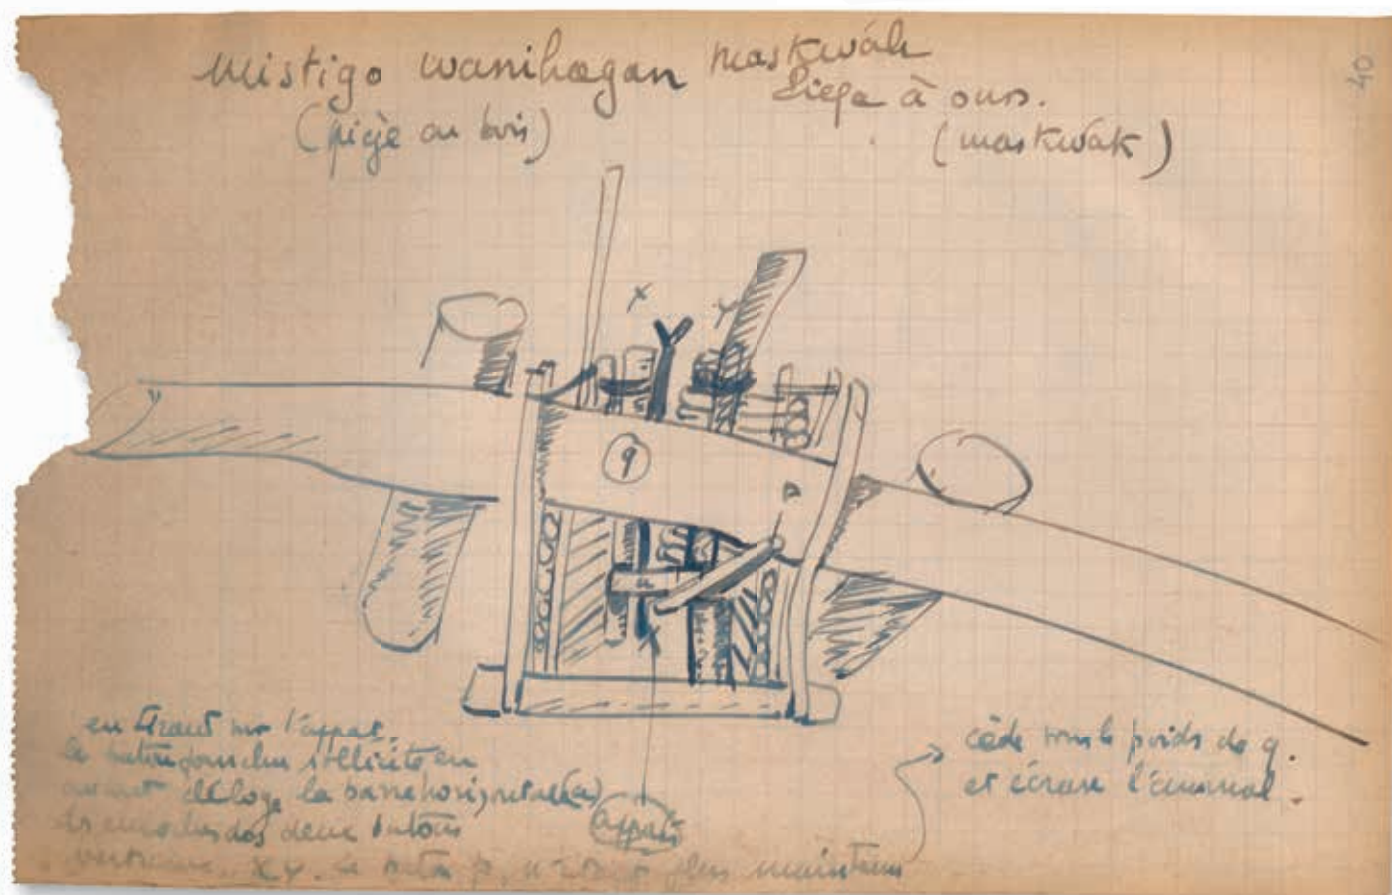 40
mistigo wanihægan maskwak
piège à ours.
(piège en bois)
(maskwak)
X
Y
q
p
a
en tirant sur l'appat.
le bâton fourchu sollicité en
avant déloge la barre horizontale (a)
des encoches des deux bâtons
verticaux. XY. Le bâton p, n'étant plus maintenu
appât
cède sous le poids de q.
et écrase l'animal.